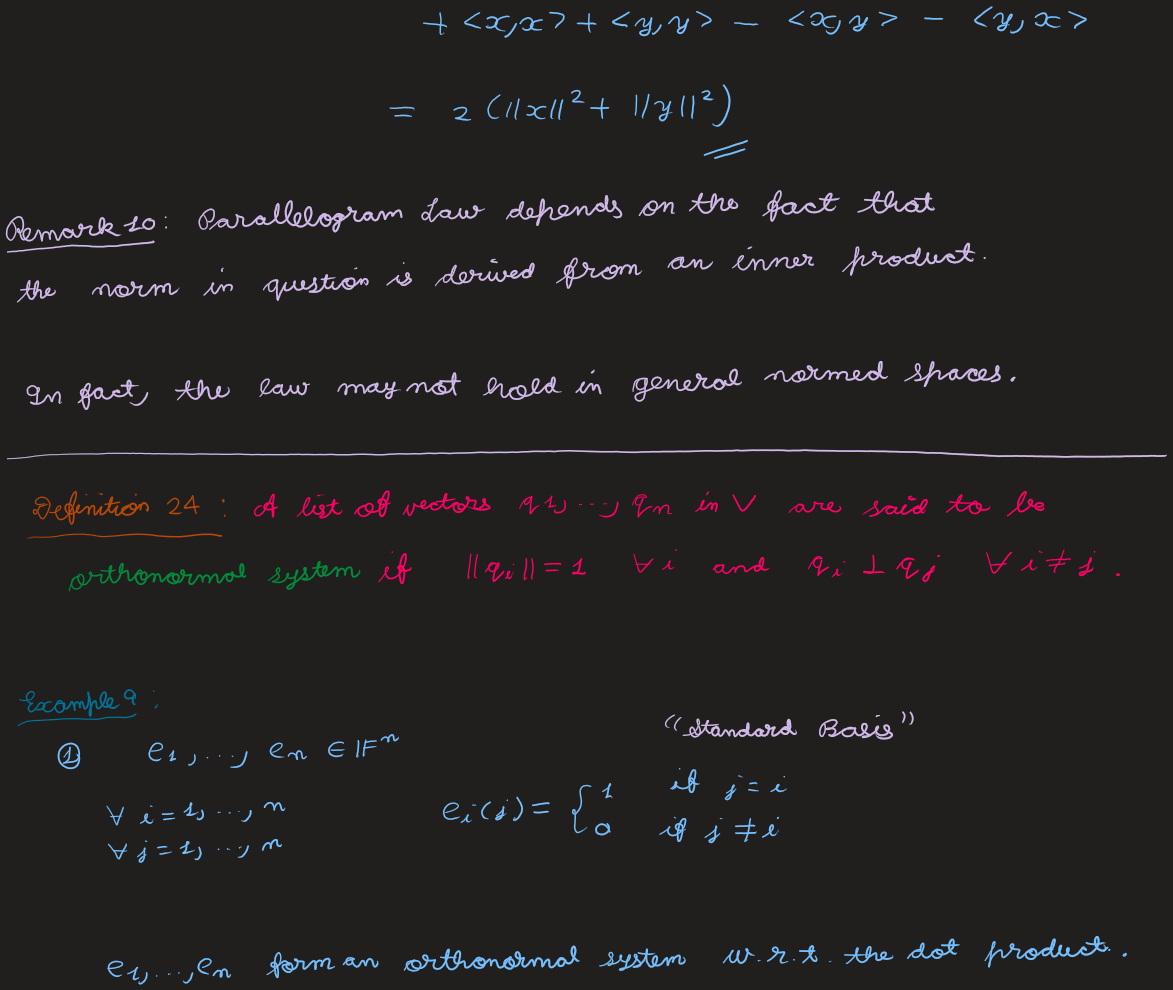 + <x,x> + <y,y> − <x,y> − <y,x>
= 2 (||x||² + ||y||²)
Remark 10: Parallelogram Law depends on the fact that
the norm in question is derived from an inner product.
In fact, the law may not hold in general normed spaces.
Definition 24 : A list of vectors q1, ..., qn in V are said to be
orthonormal system if ||qi|| = 1 ∀ i and qi ⊥ qj ∀ i ≠ j .
Example 9 :
"Standard Basis"
① e1, ..., en ∈ 𝔽ⁿ
∀ i = 1, ..., n ei(j) = { 1 if j = i
∀ j = 1, ..., n 0 if j ≠ i
e1, ..., en form an orthonormal system w.r.t. the dot product.